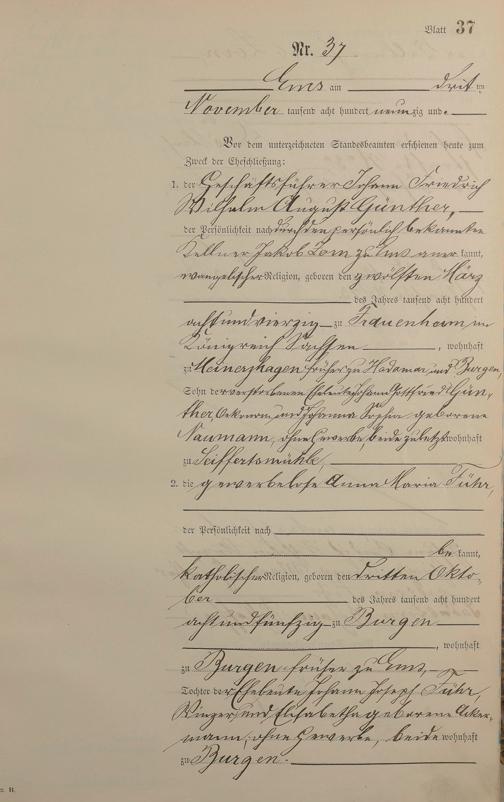 Blatt 37
Nr. 37
Ems am drit ten
November tausend acht hundert neunzig und
Vor dem unterzeichneten Standesbeamten erschienen heute zum
Zweck der Eheschließung:
1. der Geschäftsführer Johann Friedrich
Wilhelm August Günther,
der Persönlichkeit nach durch den persönlich bekannten
Kellner Jakob zu Ems aner kannt,
evangelischer Religion, geboren den zwölften März
des Jahres tausend acht hundert
achtundvierzig zu Frauenhain im
Königreich Sachsen, wohnhaft
zu Meinerzhagen früher zu Hadamar und Burgen,
Sohn der verstorbenen Eheleute Johann Gottfried Gün-
ther, Oekonom, und Johanna Sophie geborene
Naumann, ohne Gewerbe, beide zuletzt wohnhaft
zu Seiffertsmühle,
2. die gewerbelose Anna Maria Führ,
der Persönlichkeit nach
be kannt,
katholischer Religion, geboren den dritten Okto-
ber des Jahres tausend acht hundert
achtundfünfzig zu Burgen
, wohnhaft
zu Burgen früher zu Ems,
Tochter der Eheleute Johann Joseph Führ,
Winzer, und Elisabetha geborene Acker-
mann, ohne Gewerbe, beide wohnhaft
zu Burgen.
B.